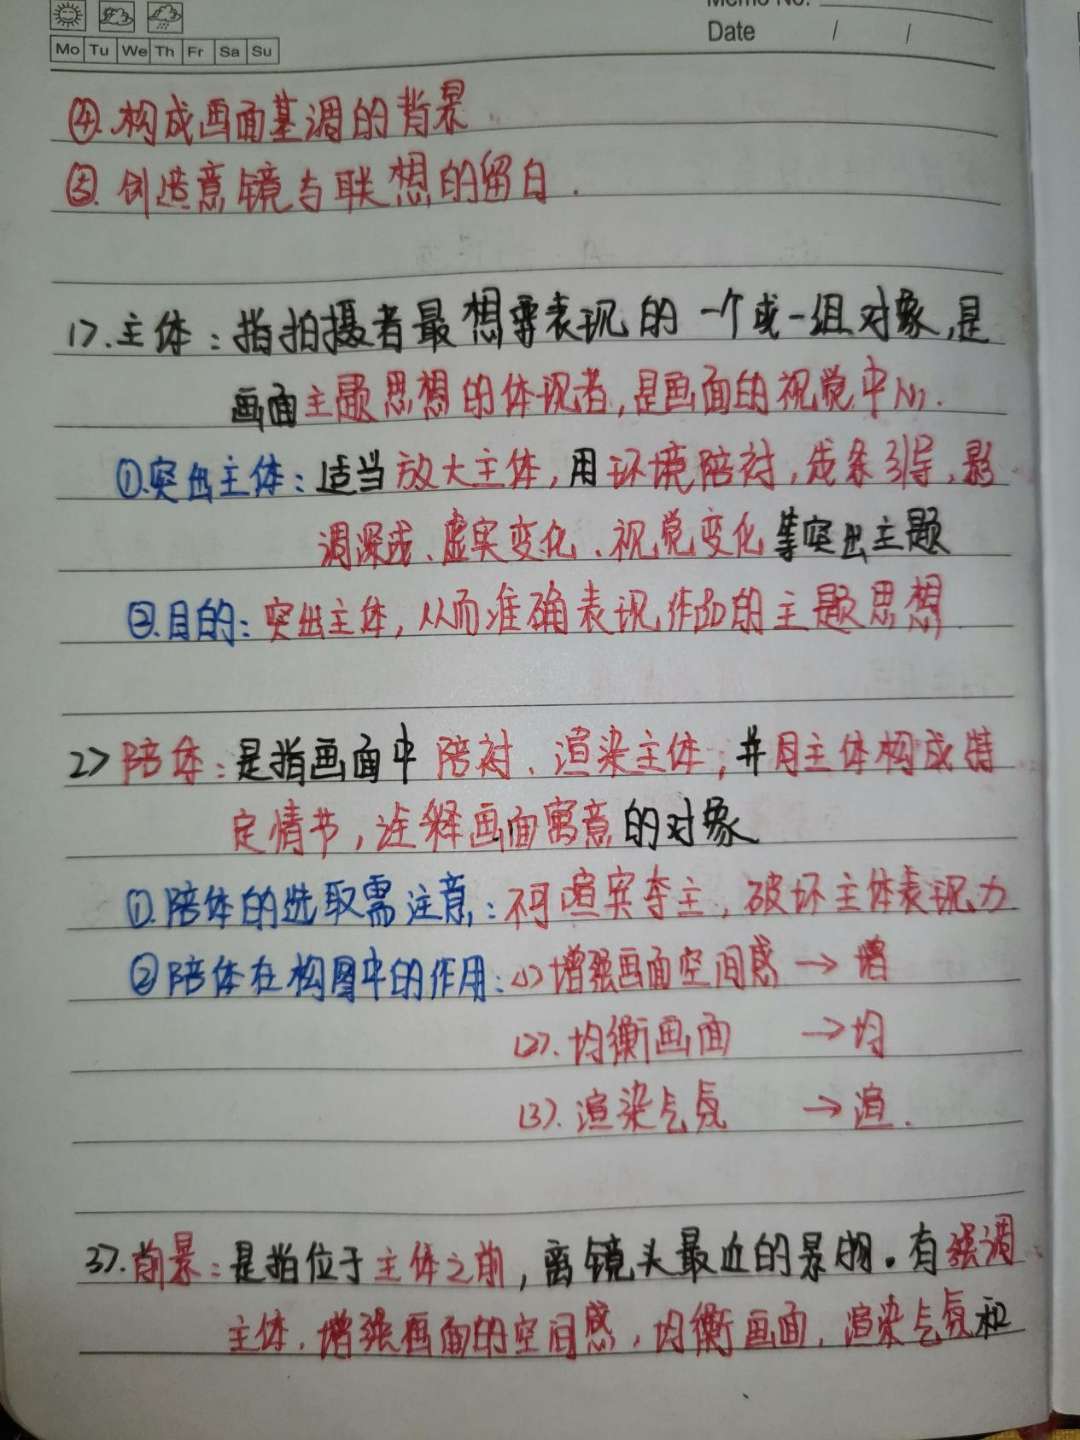 Memo No.
Mo Tu We Th Fr Sa Su
Date / /
④.构成画面基调的背景.
⑤.创造意镜与联想的留白.
1>.主体：指拍摄者最想要表现的一个或一组对象,是
画面主题思想的体现者,是画面的视觉中心.
①.突出主体：适当放大主体,用环境陪衬,线条引导,影
调深浅、虚实变化、视觉变化等突出主题
②.目的：突出主体,从而准确表现作品的主题思想.
2>陪体：是指画面中陪衬、渲染主体；并用主体构成特
定情节,注释画面寓意的对象
①.陪体的选取需注意：不可喧宾夺主,破坏主体表现力
②陪体在构图中的作用：(1)增强画面空间感→增
(2).均衡画面→均
(3).渲染气氛→渲.
3>.前景：是指位于主体之前,离镜头最近的景物。有强调
主体,增强画面的空间感,均衡画面,渲染气氛和